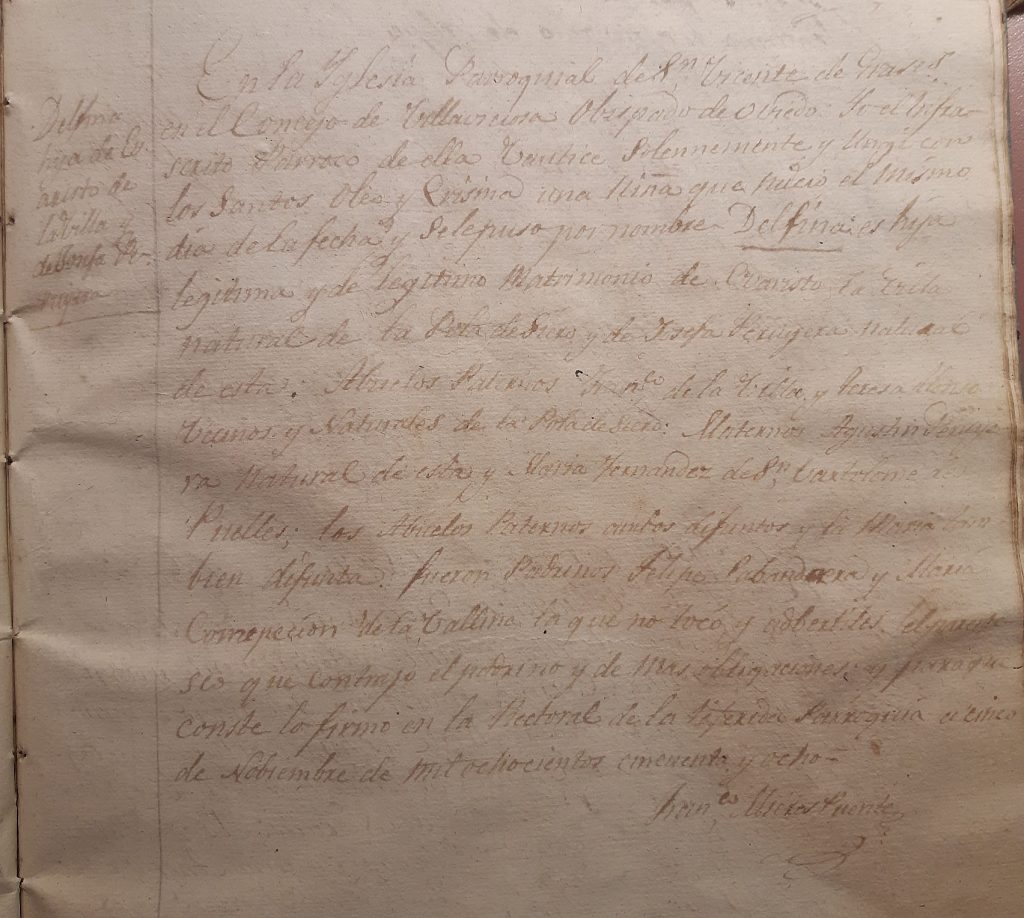 Delfina
hija de Ev-
aristo de
la Villa y
de Josefa Pe-
ruyera
En la Yglesia Parroquial de Sn. Vicente de Grases
en el Concejo de Villaviciosa Obispado de Oviedo: Yo el Infra-
scrito Parroco de ella Vautice Solennemente y Ungi con
los Santos Oleo y Crisma una Niña que nació el mismo
dia de la fecha y se le puso por nombre Delfina: es hija
legitima y de legitimo Matrimonio de Evaristo la Villa
natural de la Pola de Siero y de Josefa Peruyera natural
de esta: Abuelos Paternos Franco. de la Villa y Teresa Alonso
Vecinos y Naturales de la Pola de Siero: Maternos Agustin Peruye-
ra Natural de esta y Maria Fernandez de Sn. Vartolome de
Puelles; los Abuelos Paternos ambos difuntos y la Maria tam
bien difunta: fueron Padrinos Felipe Labandera y Maria
Comcepcion de la Vallina la que no tocó y adbertiles el parente
sco que contrajo el padrino y demas obligaciones; y para que
conste lo firmo en la Rectoral de la referida Parroquia a cinco
de Nobiembre de mil ochocientos cincuenta y ocho-
Franco. Puente